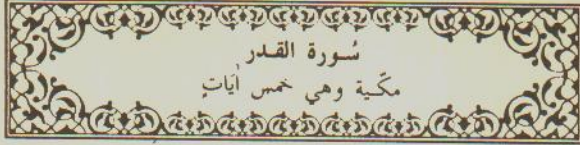 سُورة القدر
مكّية وهي خمس اٰيَاتٍ